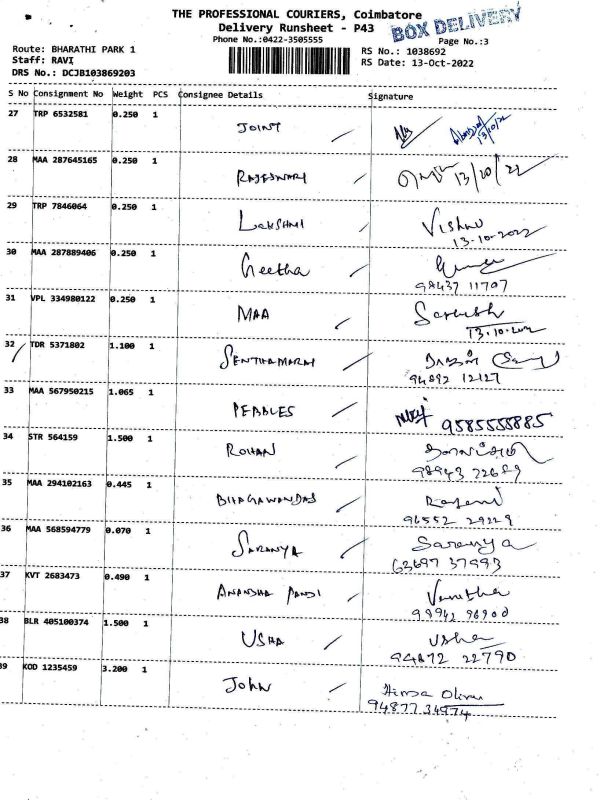 THE PROFESSIONAL COURIERS, Coimbatore
Delivery Runsheet - P43
BOX DELIVERY
Phone No.:0422-3505555
Page No.:3
Route: BHARATHI PARK 1
RS No.: 1038692
Staff: RAVI
RS Date: 13-Oct-2022
DRS No.: DCJB103869203
S No Consignment No Weight PCS Consignee Details Signature
27 TRP 6532581 0.250 1 JOINT 13/10/22
28 MAA 287645165 0.250 1 RAJESWARI 13/10/22
29 TRP 7846064 0.250 1 LAKSHMI Vishnu
13-10-2022
30 MAA 287889406 0.250 1 Geetha
98437 11707
31 VPL 334980122 0.250 1 MAA
13.10.2022
32 TDR 5371802 1.100 1 SENTHAMARAI
94892 12127
33 MAA 567950215 1.065 1 PEBBLES 9585555885
34 STR 564159 1.500 1 ROHAN
98943 72689
35 MAA 294102163 0.445 1 BHAGAWANDAS
96552 29229
36 MAA 568594779 0.070 1 SARANYA Saranya
63697 37993
37 KVT 2683473 0.490 1 ANANDHA PANDI Vanitha
99942 96900
38 BLR 405100374 1.500 1 USHA Usha
94872 22790
39 KOD 1235459 3.200 1 JOHN
94877 34974